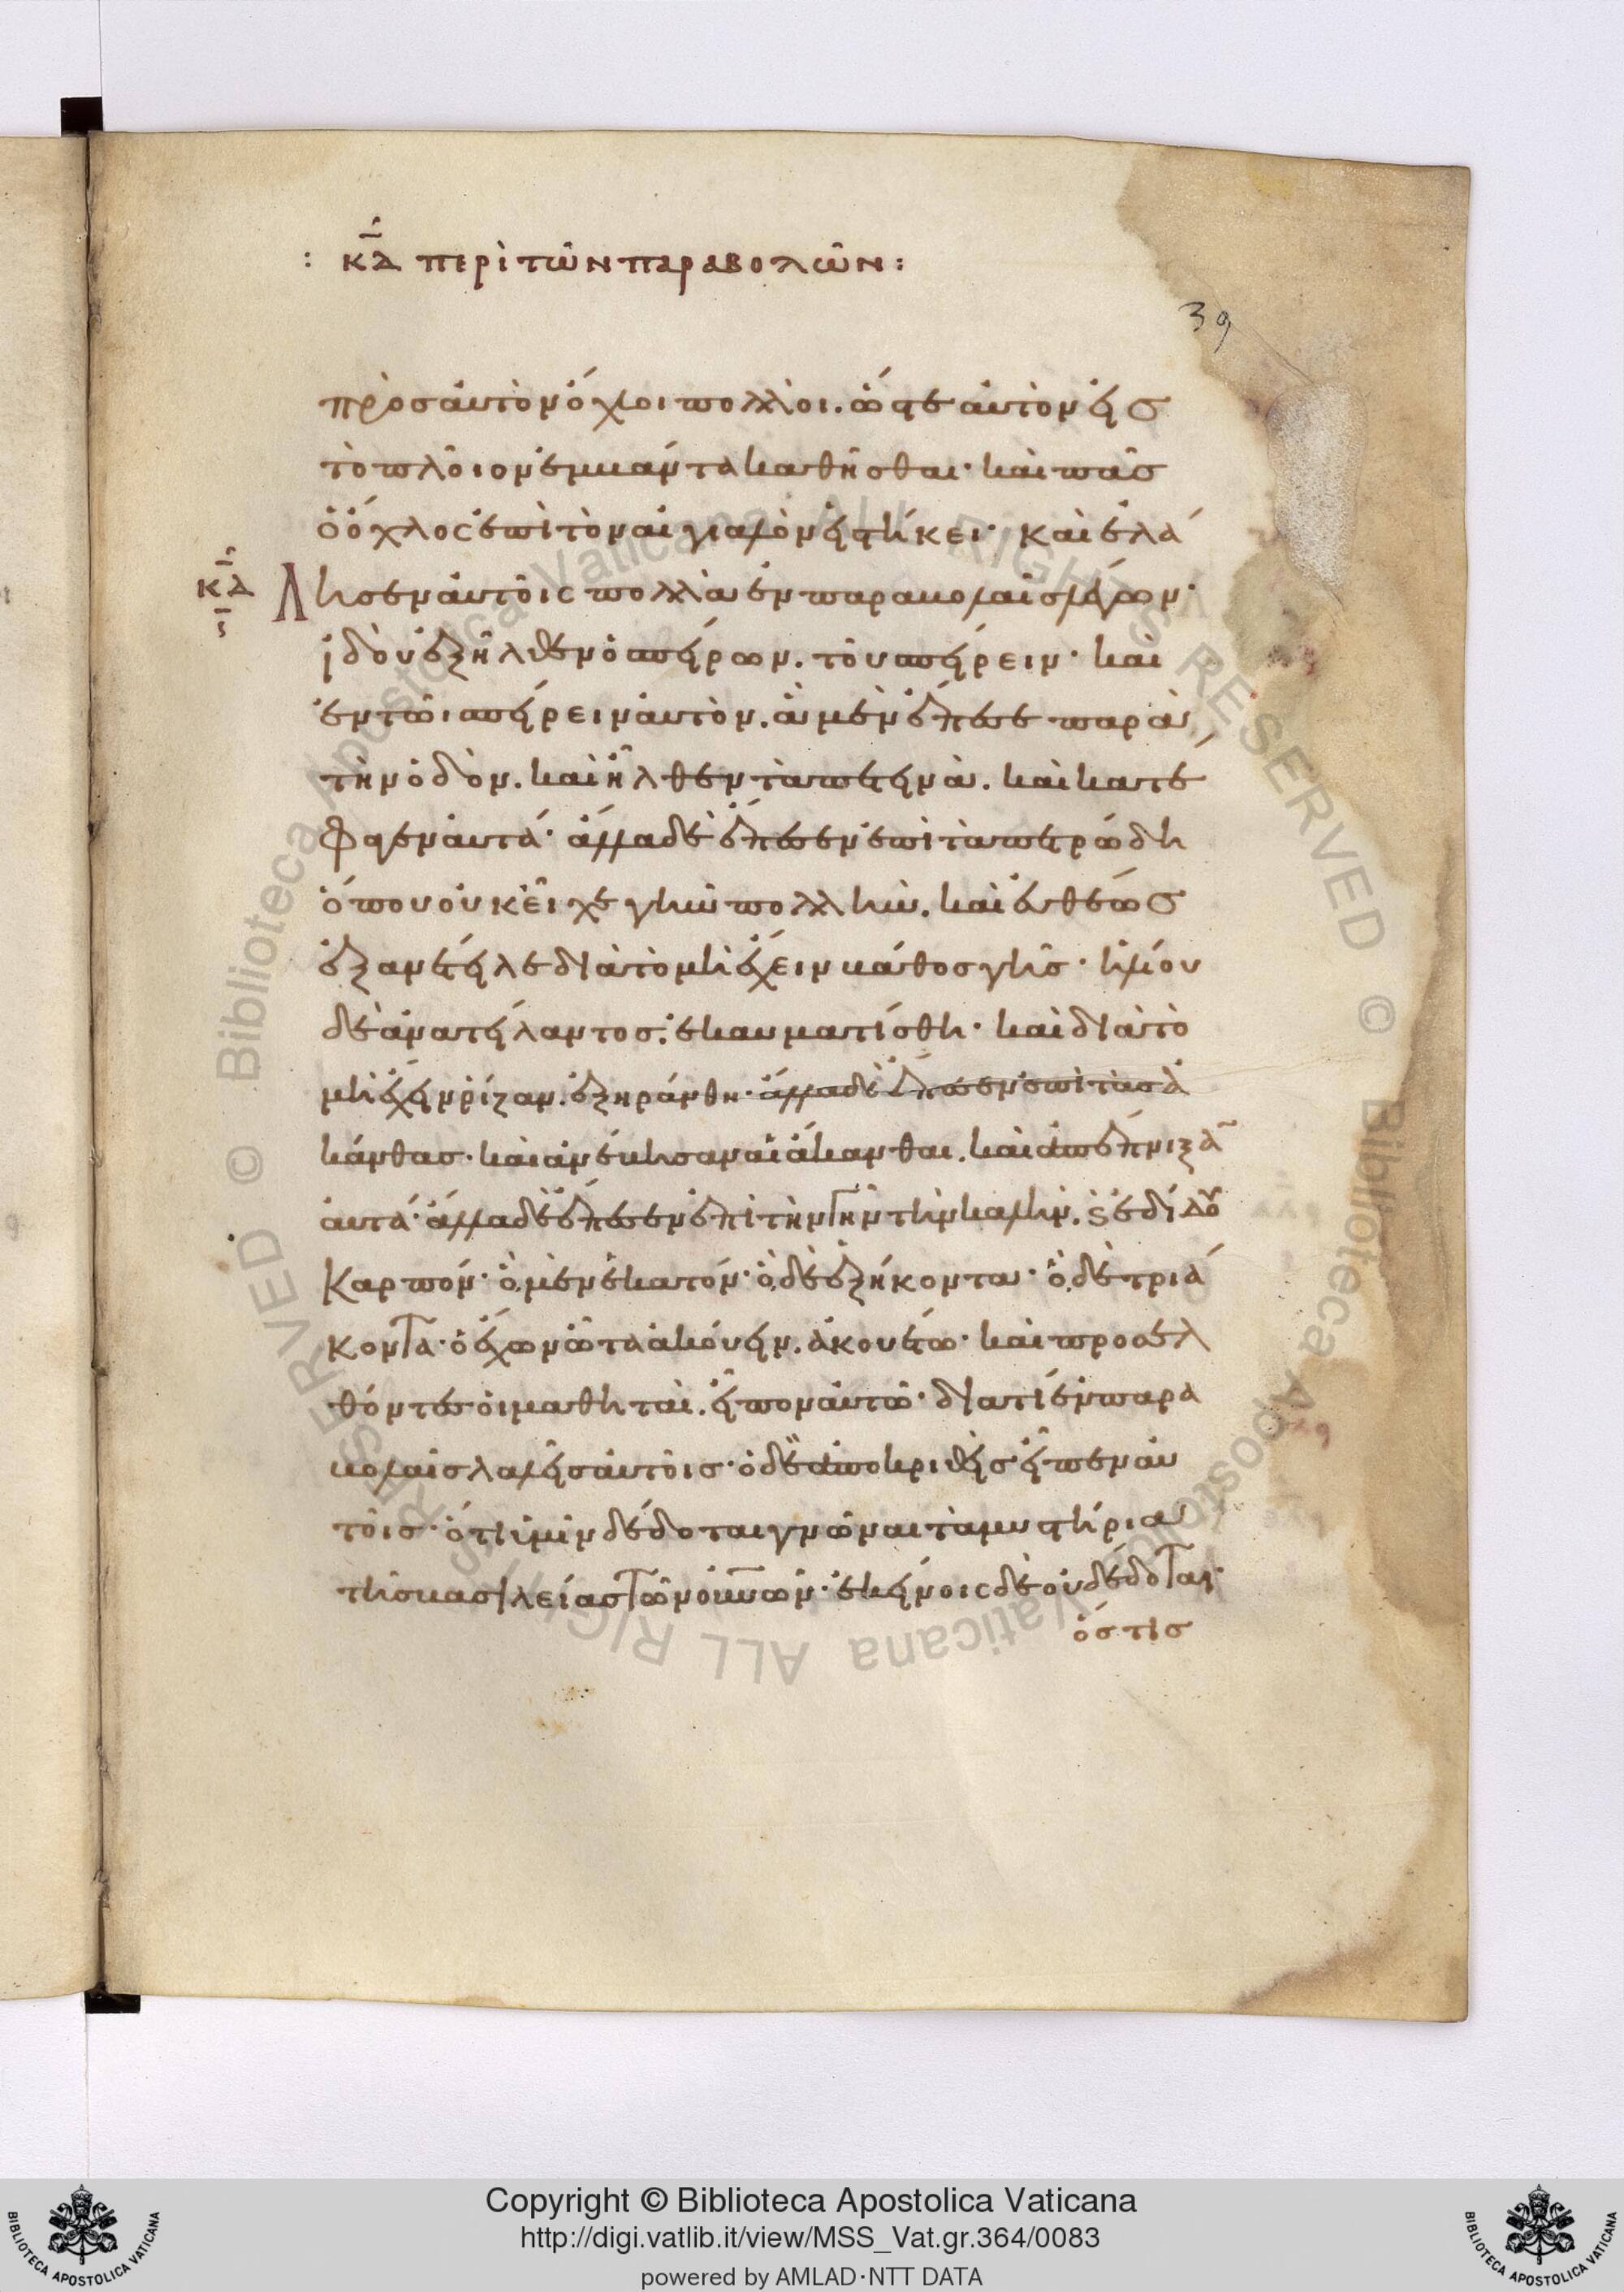 : κδ περὶ τῶν παραβολῶν :
39
πρὸς αὐτὸν ὄχλοι πολλοὶ. ὥστε αὐτὸν εἰς
τὸ πλοῖον ἐμβάντα καθῆσθαι· καὶ πᾶσ
ὁ ὄχλος ἐπὶ τὸν αἰγιαλὸν εἱστήκει· καὶ ἐλά
κδ
ς
λησεν αὐτοῖς πολλὰ ἐν παραβολαῖς λέγων·
ἰδοὺ ἐξῆλθεν ὁ σπείρων. τοῦ σπείρειν· καὶ
ἐν τῶι σπείρειν αὐτὸν. ἃ μὲν ἔπεσε παρὰ
τὴν ὁδὸν. καὶ ἦλθεν τὰ πετεινὰ. καὶ κατέ
φαγεν αὐτά· ἄλλα δὲ ἔπεσεν ἐπὶ τὰ πετρώδη
ὅπου οὐκ εἶχε γῆν πολλὴν. καὶ εὐθέως
ἐξανέτειλε διὰ τὸ μὴ ἔχειν βάθος γῆς· ἡλίου
δὲ ἀνατείλαντος. ἐκαυματίσθη· καὶ διὰ τὸ
μὴ ἔχειν ῥίζαν. ἐξηράνθη· ἄλλα δὲ ἔπεσεν ἐπὶ τὰς ἀ
κάνθας· καὶ ἀνέβησαν αἱ ἄκανθαι. καὶ ἀπέπνιξαν
αὐτά· ἄλλα δὲ ἔπεσεν ἐπὶ τὴν γῆν τὴν καλήν. ϛ ἐδίδου
καρπόν· ὁ μὲν ἑκατόν· ὁ δὲ ἑξήκοντα· ὁ δὲ τριά
κοντα· ὁ ἔχων ὦτα ἀκούειν. ἀκουέτω· καὶ προσελ
θόντες οἱ μαθηταὶ. εἶπον αὐτῶ· διατί ἐν παρα
βολαῖς λαλεῖς αὐτοῖς· ὁ δὲ ἀποκριθεὶς εἶπεν αὐ
τοῖς· ὅτι ὑμῖν δέδοται γνῶναι τὰ μυστήρια
τῆς βασιλείας τῶν οὐνῶν· ἐκείνοις δὲ οὐ δέδοται·
ὅστις
Copyright © Biblioteca Apostolica Vaticana
http://digi.vatlib.it/view/MSS_Vat.gr.364/0083
powered by AMLAD·NTT DATA
BIBLIOTECA APOSTOLICA VATICANA
BIBLIOTECA APOSTOLICA VATICANA
© Biblioteca Apostolica Vaticana ALL RIGHTS RESERVED
© Biblioteca Apostolica Vaticana ALL RIGHTS RESERVED